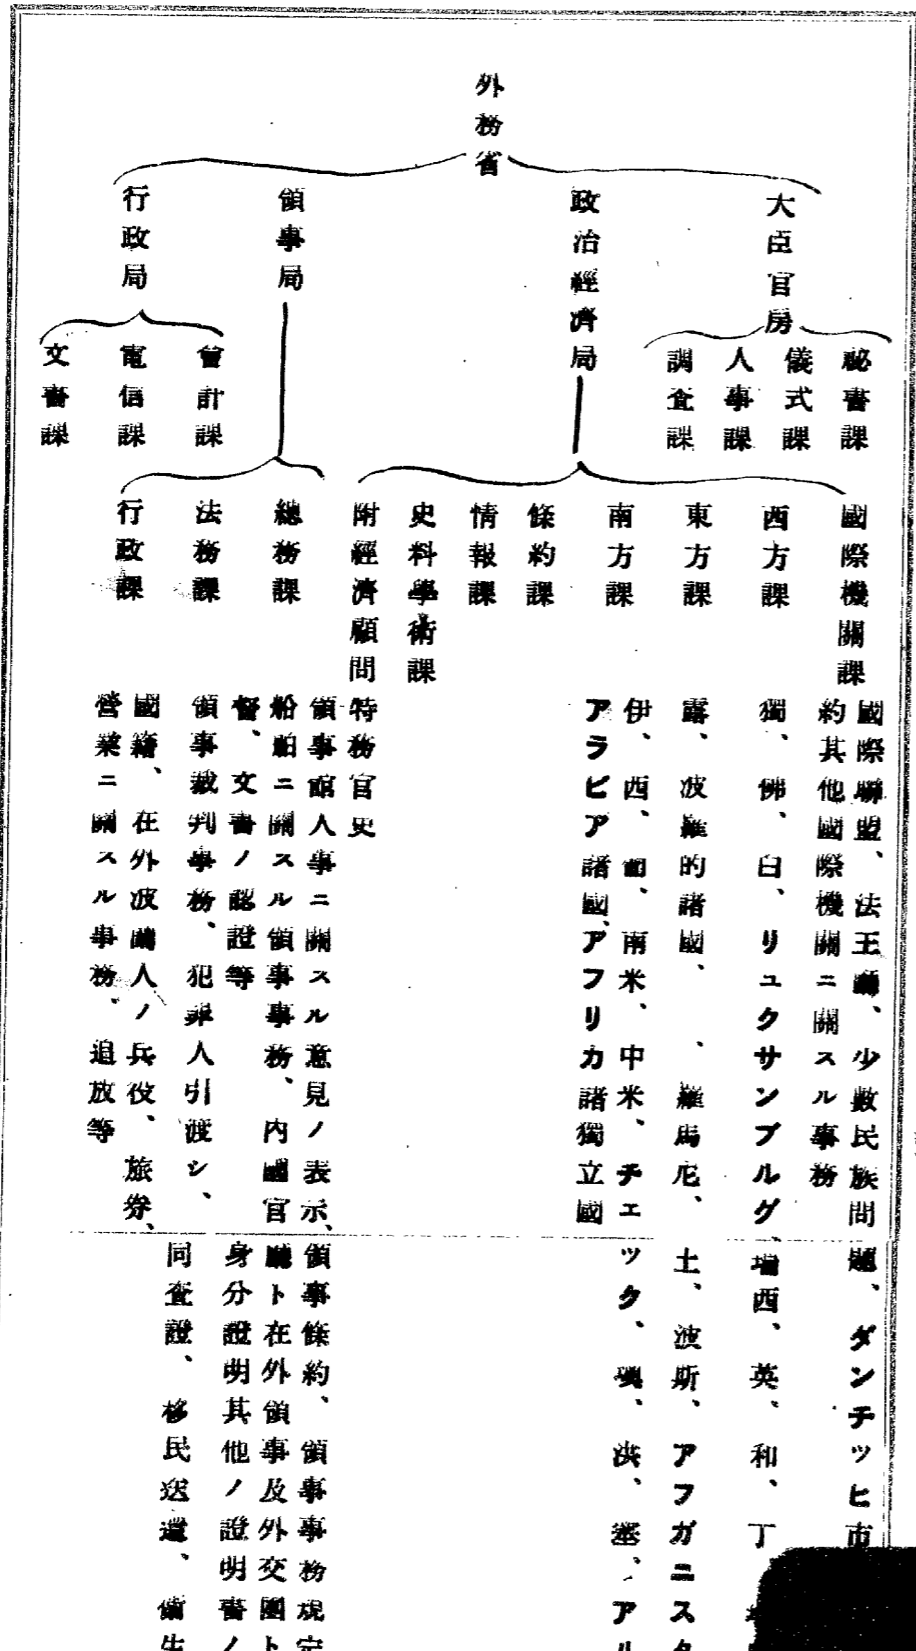 外務省
大臣官房
秘書課
儀式課
人事課
調査課
政治經濟局
國際機關課
國際聯盟、法王廳、少數民族問題、ダンチッヒ市
約其他國際機關ニ關スル事務
西方課
獨、佛、白、リュクサンブルグ、瑞西、英、和、丁
東方課
露、波羅的諸國、、羅馬尼、土、波斯、アフガニス
南方課
伊、西、葡、南米、中米、チェック、墺、洪、塞、アル
アラビア諸國、アフリカ諸獨立國
條約課
情報課
史料學術課
附經濟顧問
特務官吏
領事局
總務課
領事館人事ニ關スル意見ノ表示、領事條約、領事事務規定
船舶ニ關スル領事事務、內國官廳ト在外領事及外交團ト
督、文書ノ認證等
身分證明其他ノ證明書ノ
法務課
領事裁判事務、犯罪人引渡シ、
行政課
國籍、在外波蘭人ノ兵役、旅券、同査證、移民送還、衞生
營業ニ關スル事務、追放等
行政局
會計課
電信課
文書課